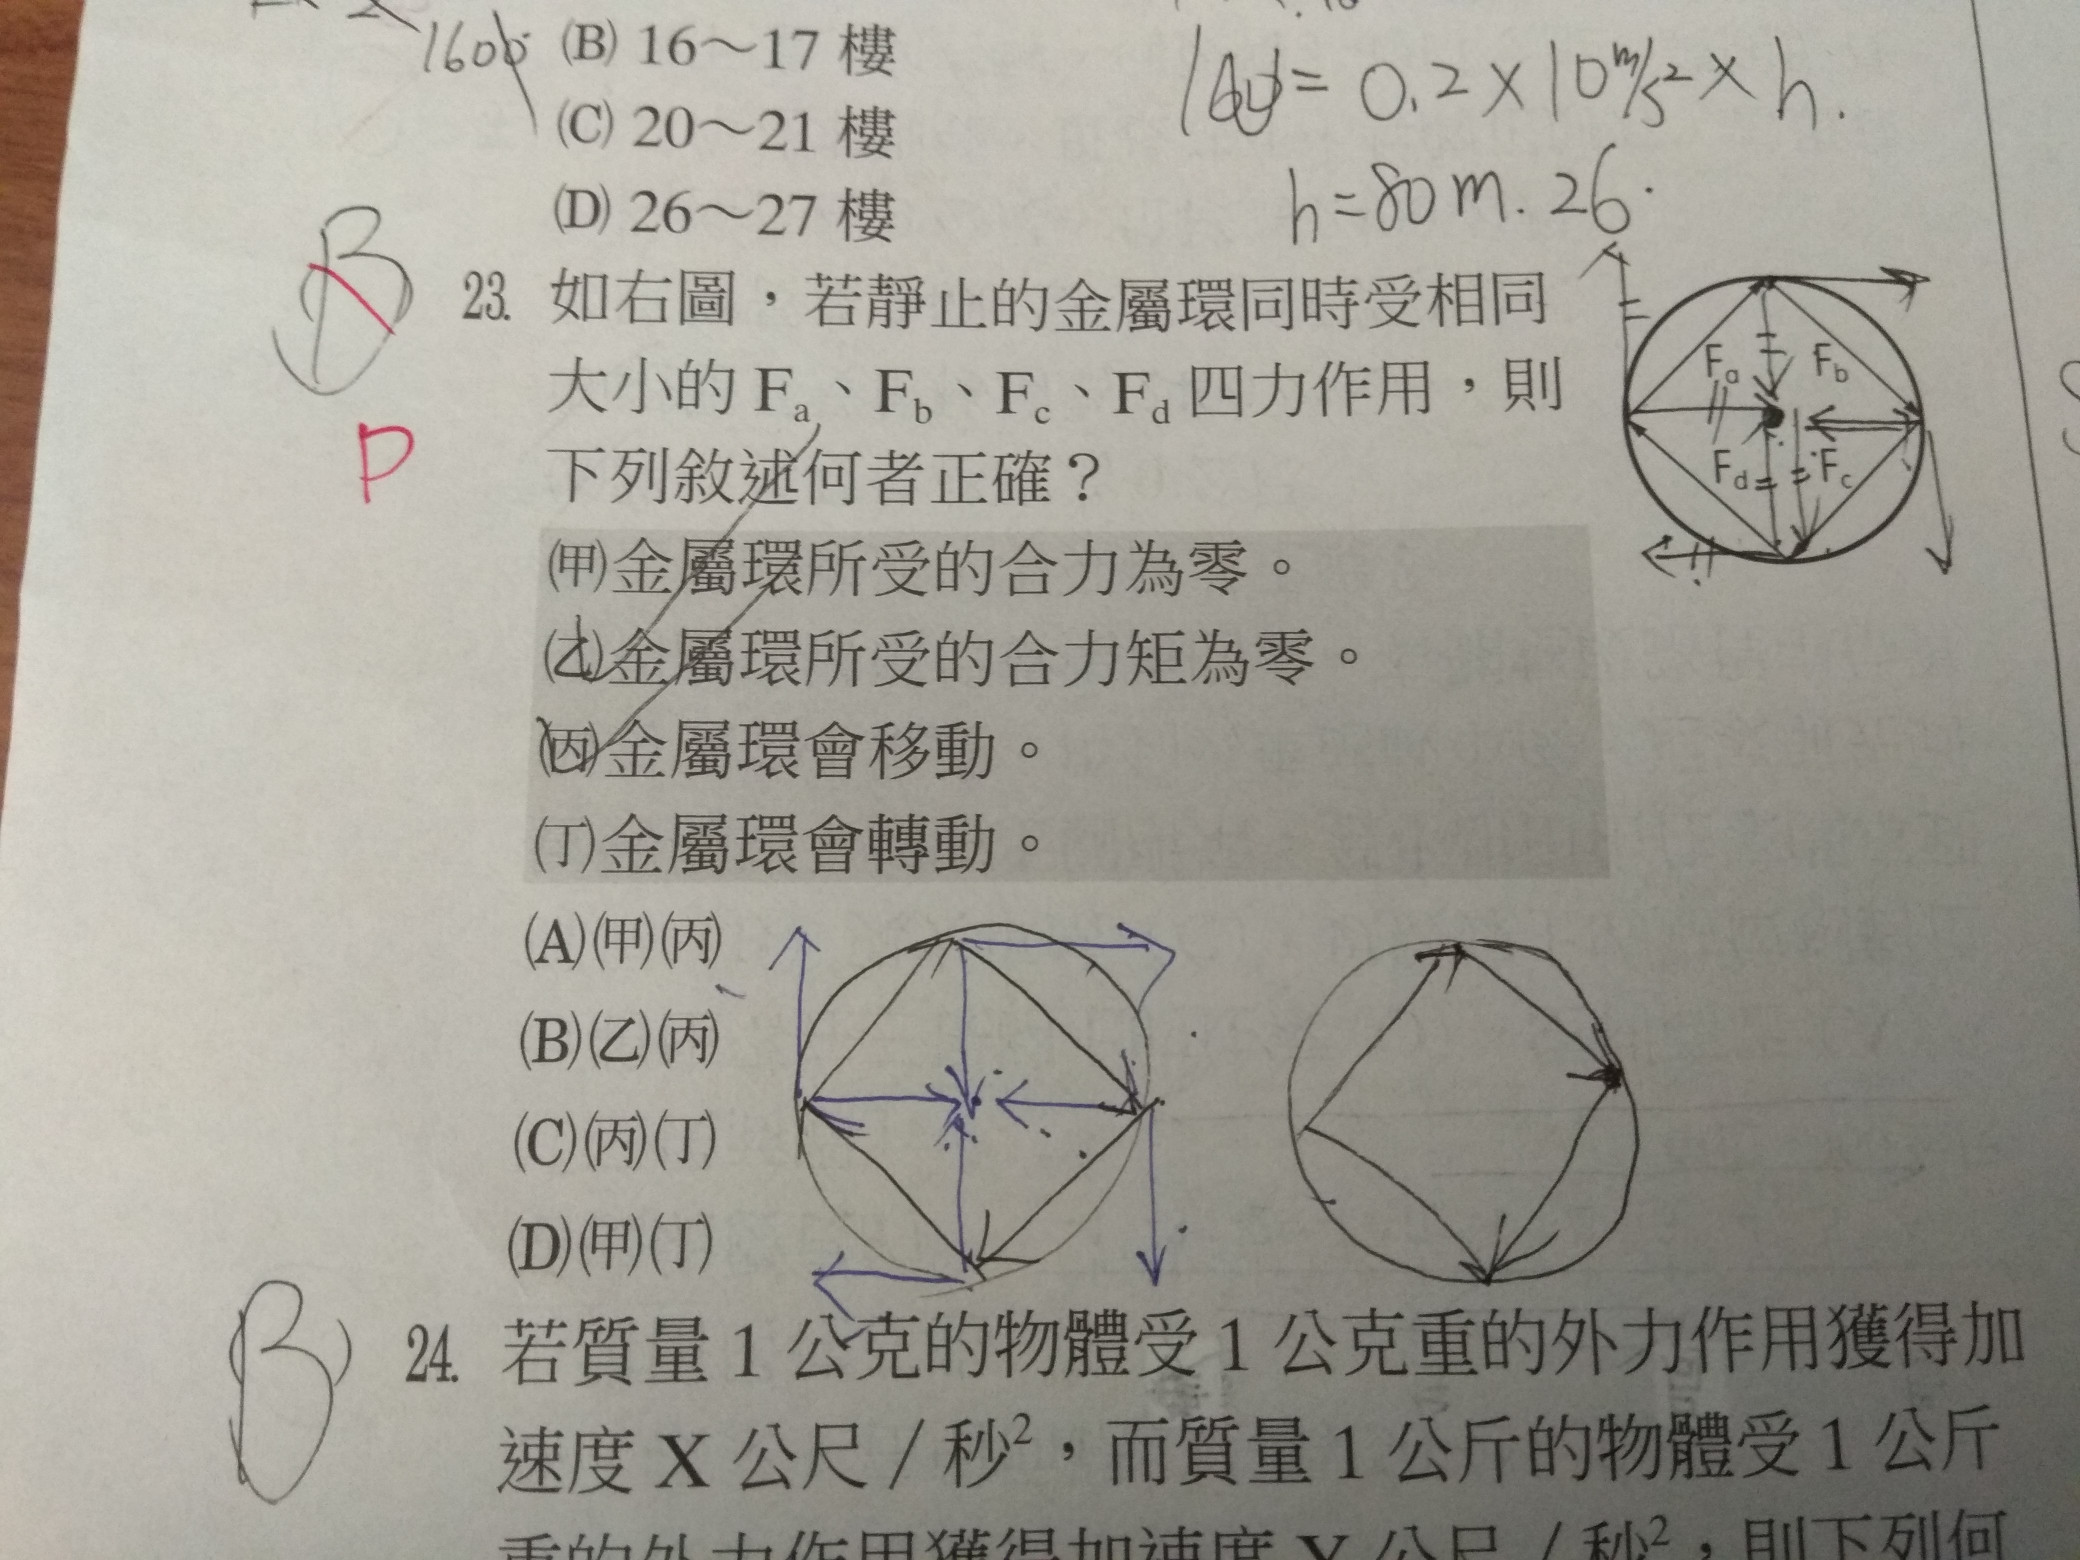 1600 (B) 16～17 樓
(C) 20～21 樓
(D) 26～27 樓
= 0.2 × 10 m/s² × h.
h = 80 m. 26.
B
D
23. 如右圖，若靜止的金屬環同時受相同
大小的 Fa、Fb、Fc、Fd 四力作用，則
下列敘述何者正確？
Fa Fb
Fd Fc
(甲)金屬環所受的合力為零。
(乙)金屬環所受的合力矩為零。
(丙)金屬環會移動。
(丁)金屬環會轉動。
(A)(甲)(丙)
(B)(乙)(丙)
(C)(丙)(丁)
(D)(甲)(丁)
B
24. 若質量 1 公克的物體受 1 公克重的外力作用獲得加
速度 X 公尺／秒²，而質量 1 公斤的物體受 1 公斤
重的外力作用獲得加速度 Y 公尺／秒²，則下列何